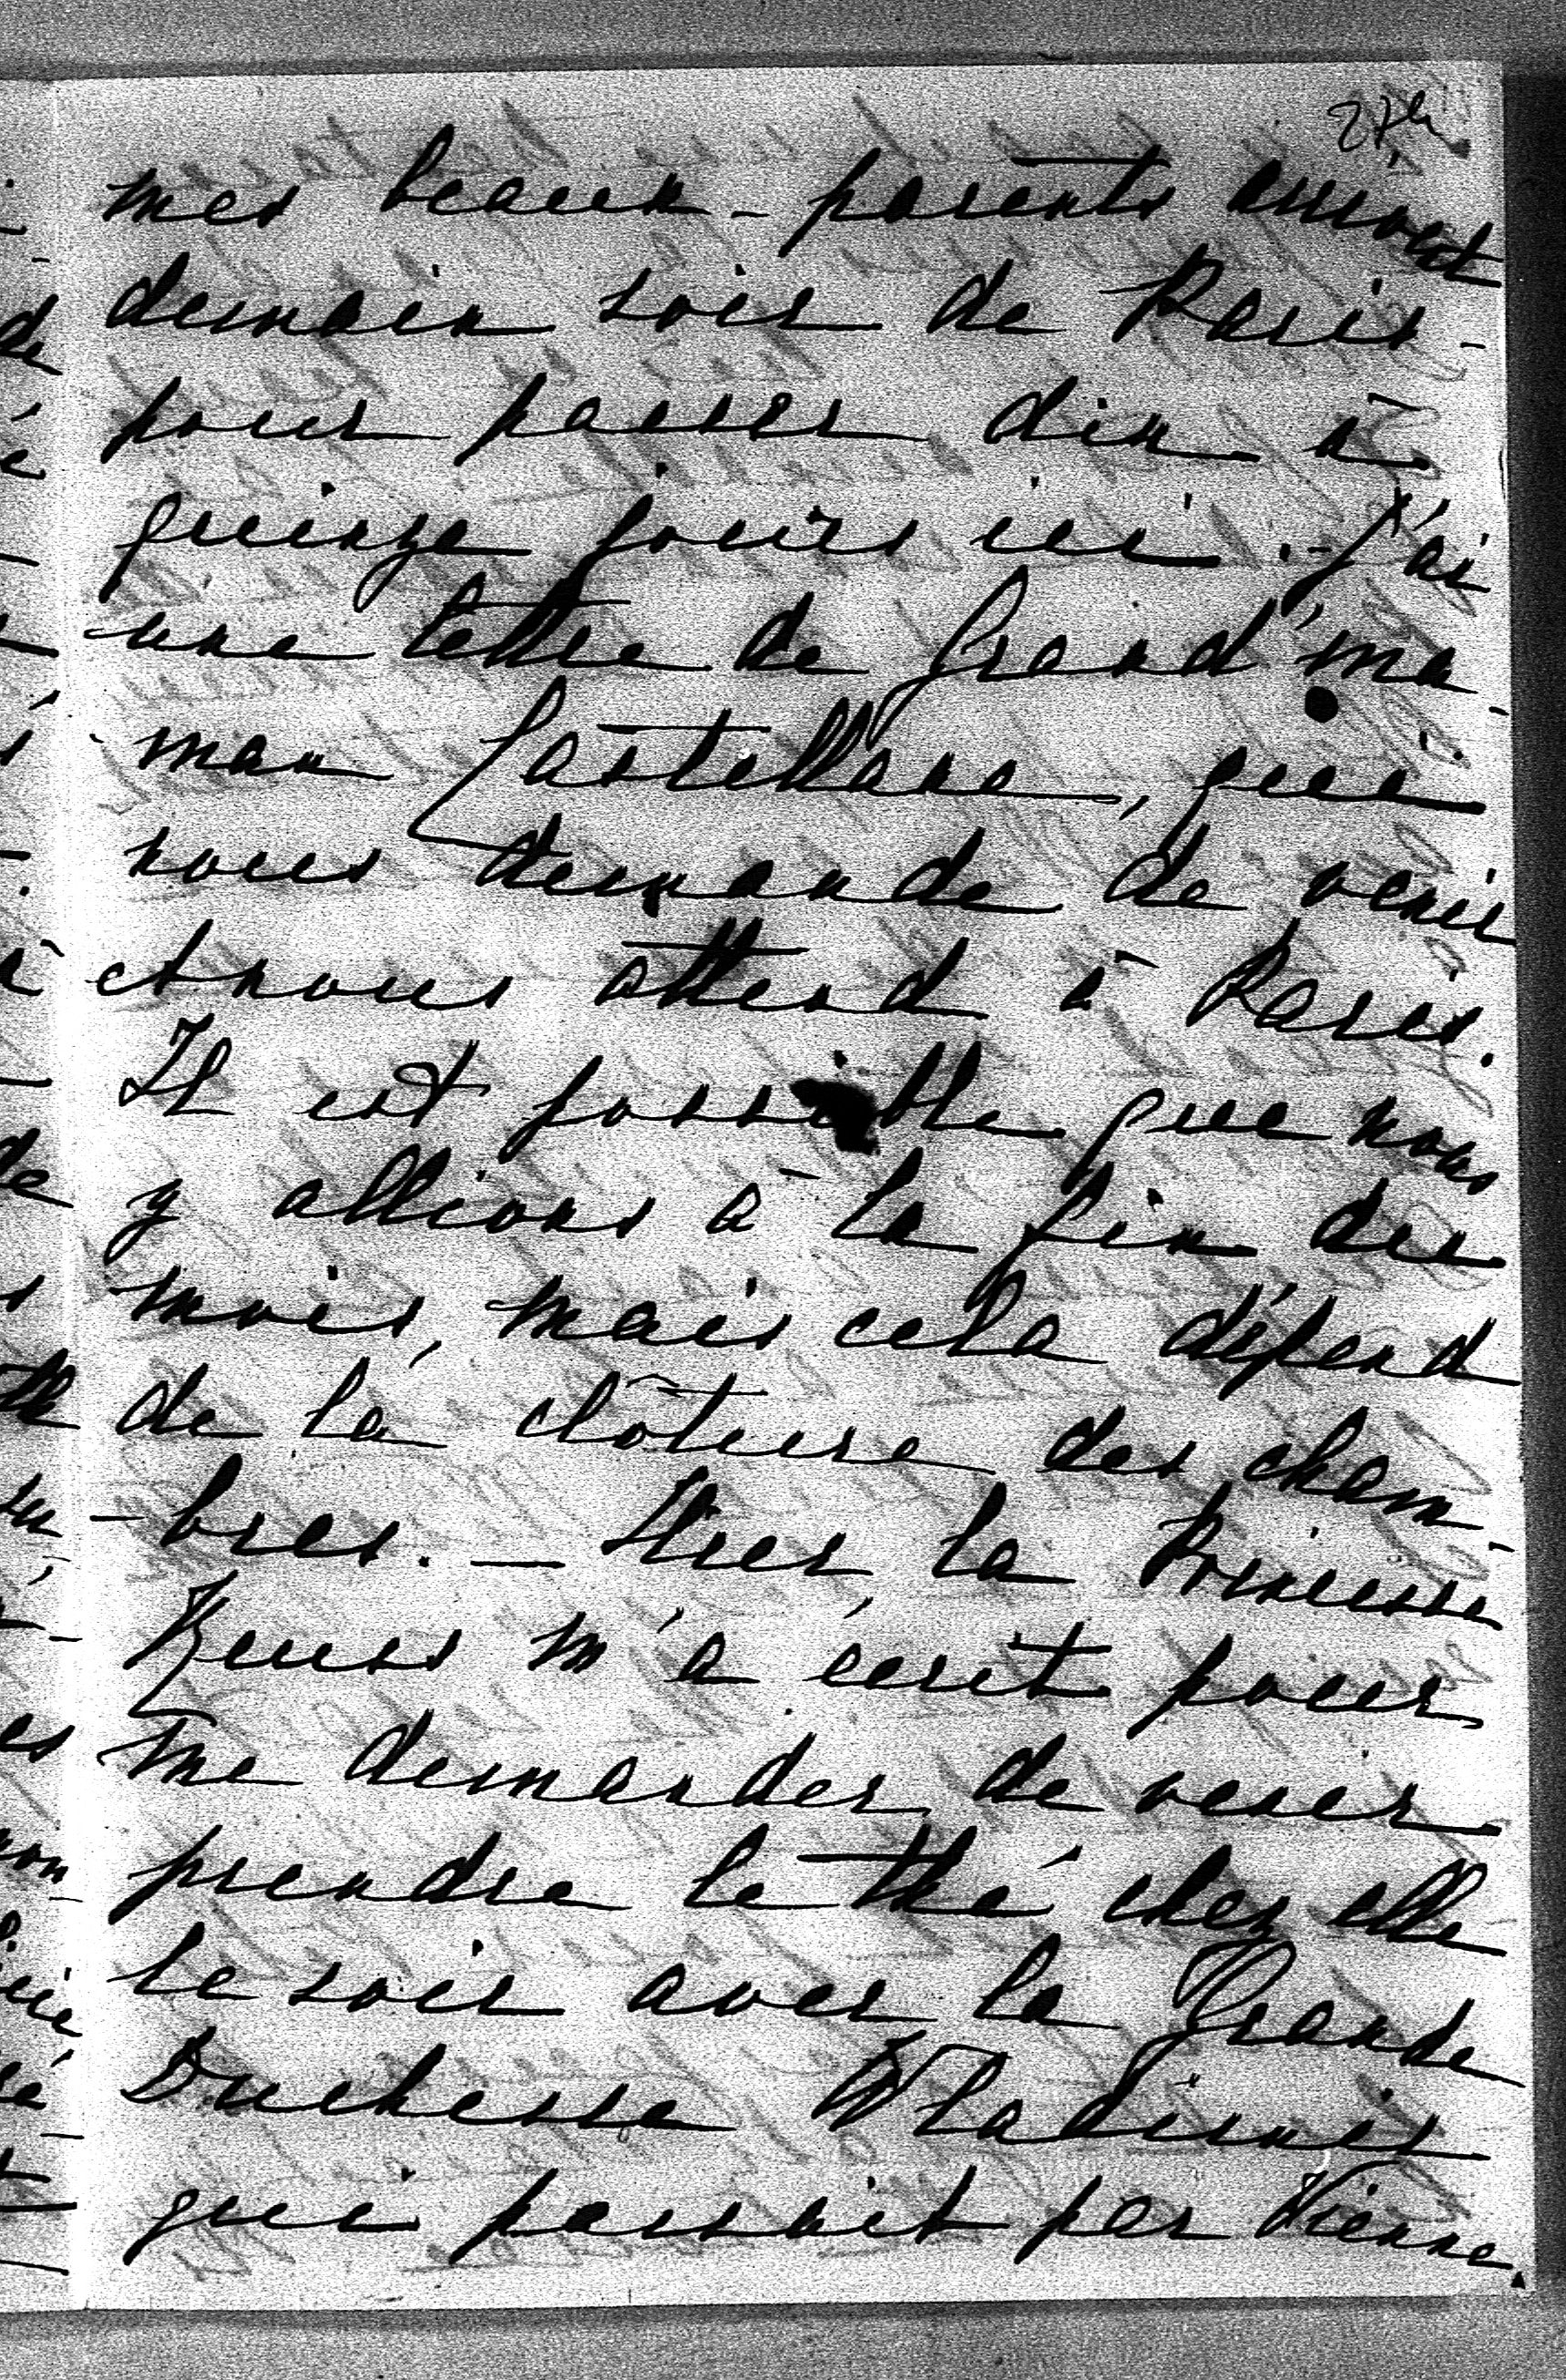 mes beaux-parents arrivent
demain soir de Paris -
pour passer dix à
quinze jours ici. - J'ai
une lettre de Grand'ma-
- man Castellane, qui
nous demande de venir
et nous attend à Paris.
Il est possible que nous
y allions à la fin du
mois, mais cela dépend
de la clôture des cham-
- bres. — Hier la Princesse
Reuss m'a écrit pour
me demander de venir
prendre le thé chez elle
le soir avec la Grande
Duchesse Wladimir
qui passait par Vienne.